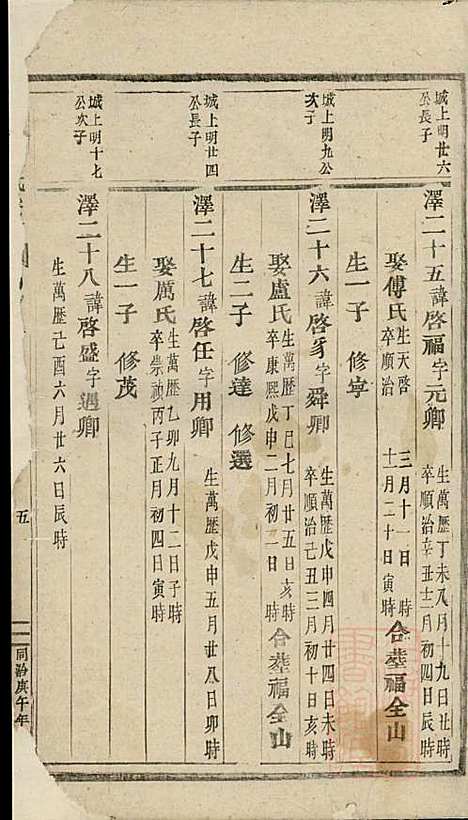 城上明廿六
公長子
澤二十五諱啓福字元卿
生萬歷丁未八月十九日丑時
卒順治辛丑十二月初四日辰時
娶傅氏
生天啓 三月十一日 時
卒順治 十一月二十日寅時
合塟福全山
生一子 修寧
城上明九公
次子
澤二十六諱啓豸字舜卿
生萬歷戊申四月廿四日未時
卒順治己丑三月初十日亥時
娶盧氏
生萬歷丁巳七月廿五日亥時
卒康熙戊申二月初二日 時
合塟福全山
生二子 修達 修選
城上明廿四
公長子
澤二十七諱啓任字用卿
生萬歷戊申五月廿八日卯時
娶厲氏
生萬歷乙卯九月十二日子時
卒崇禎丙子正月初四日寅時
生一子 修茂
城上明十七
公次子
澤二十八諱啓盛字遇卿
生萬歷己酉六月廿六日辰時
五
同治庚午年